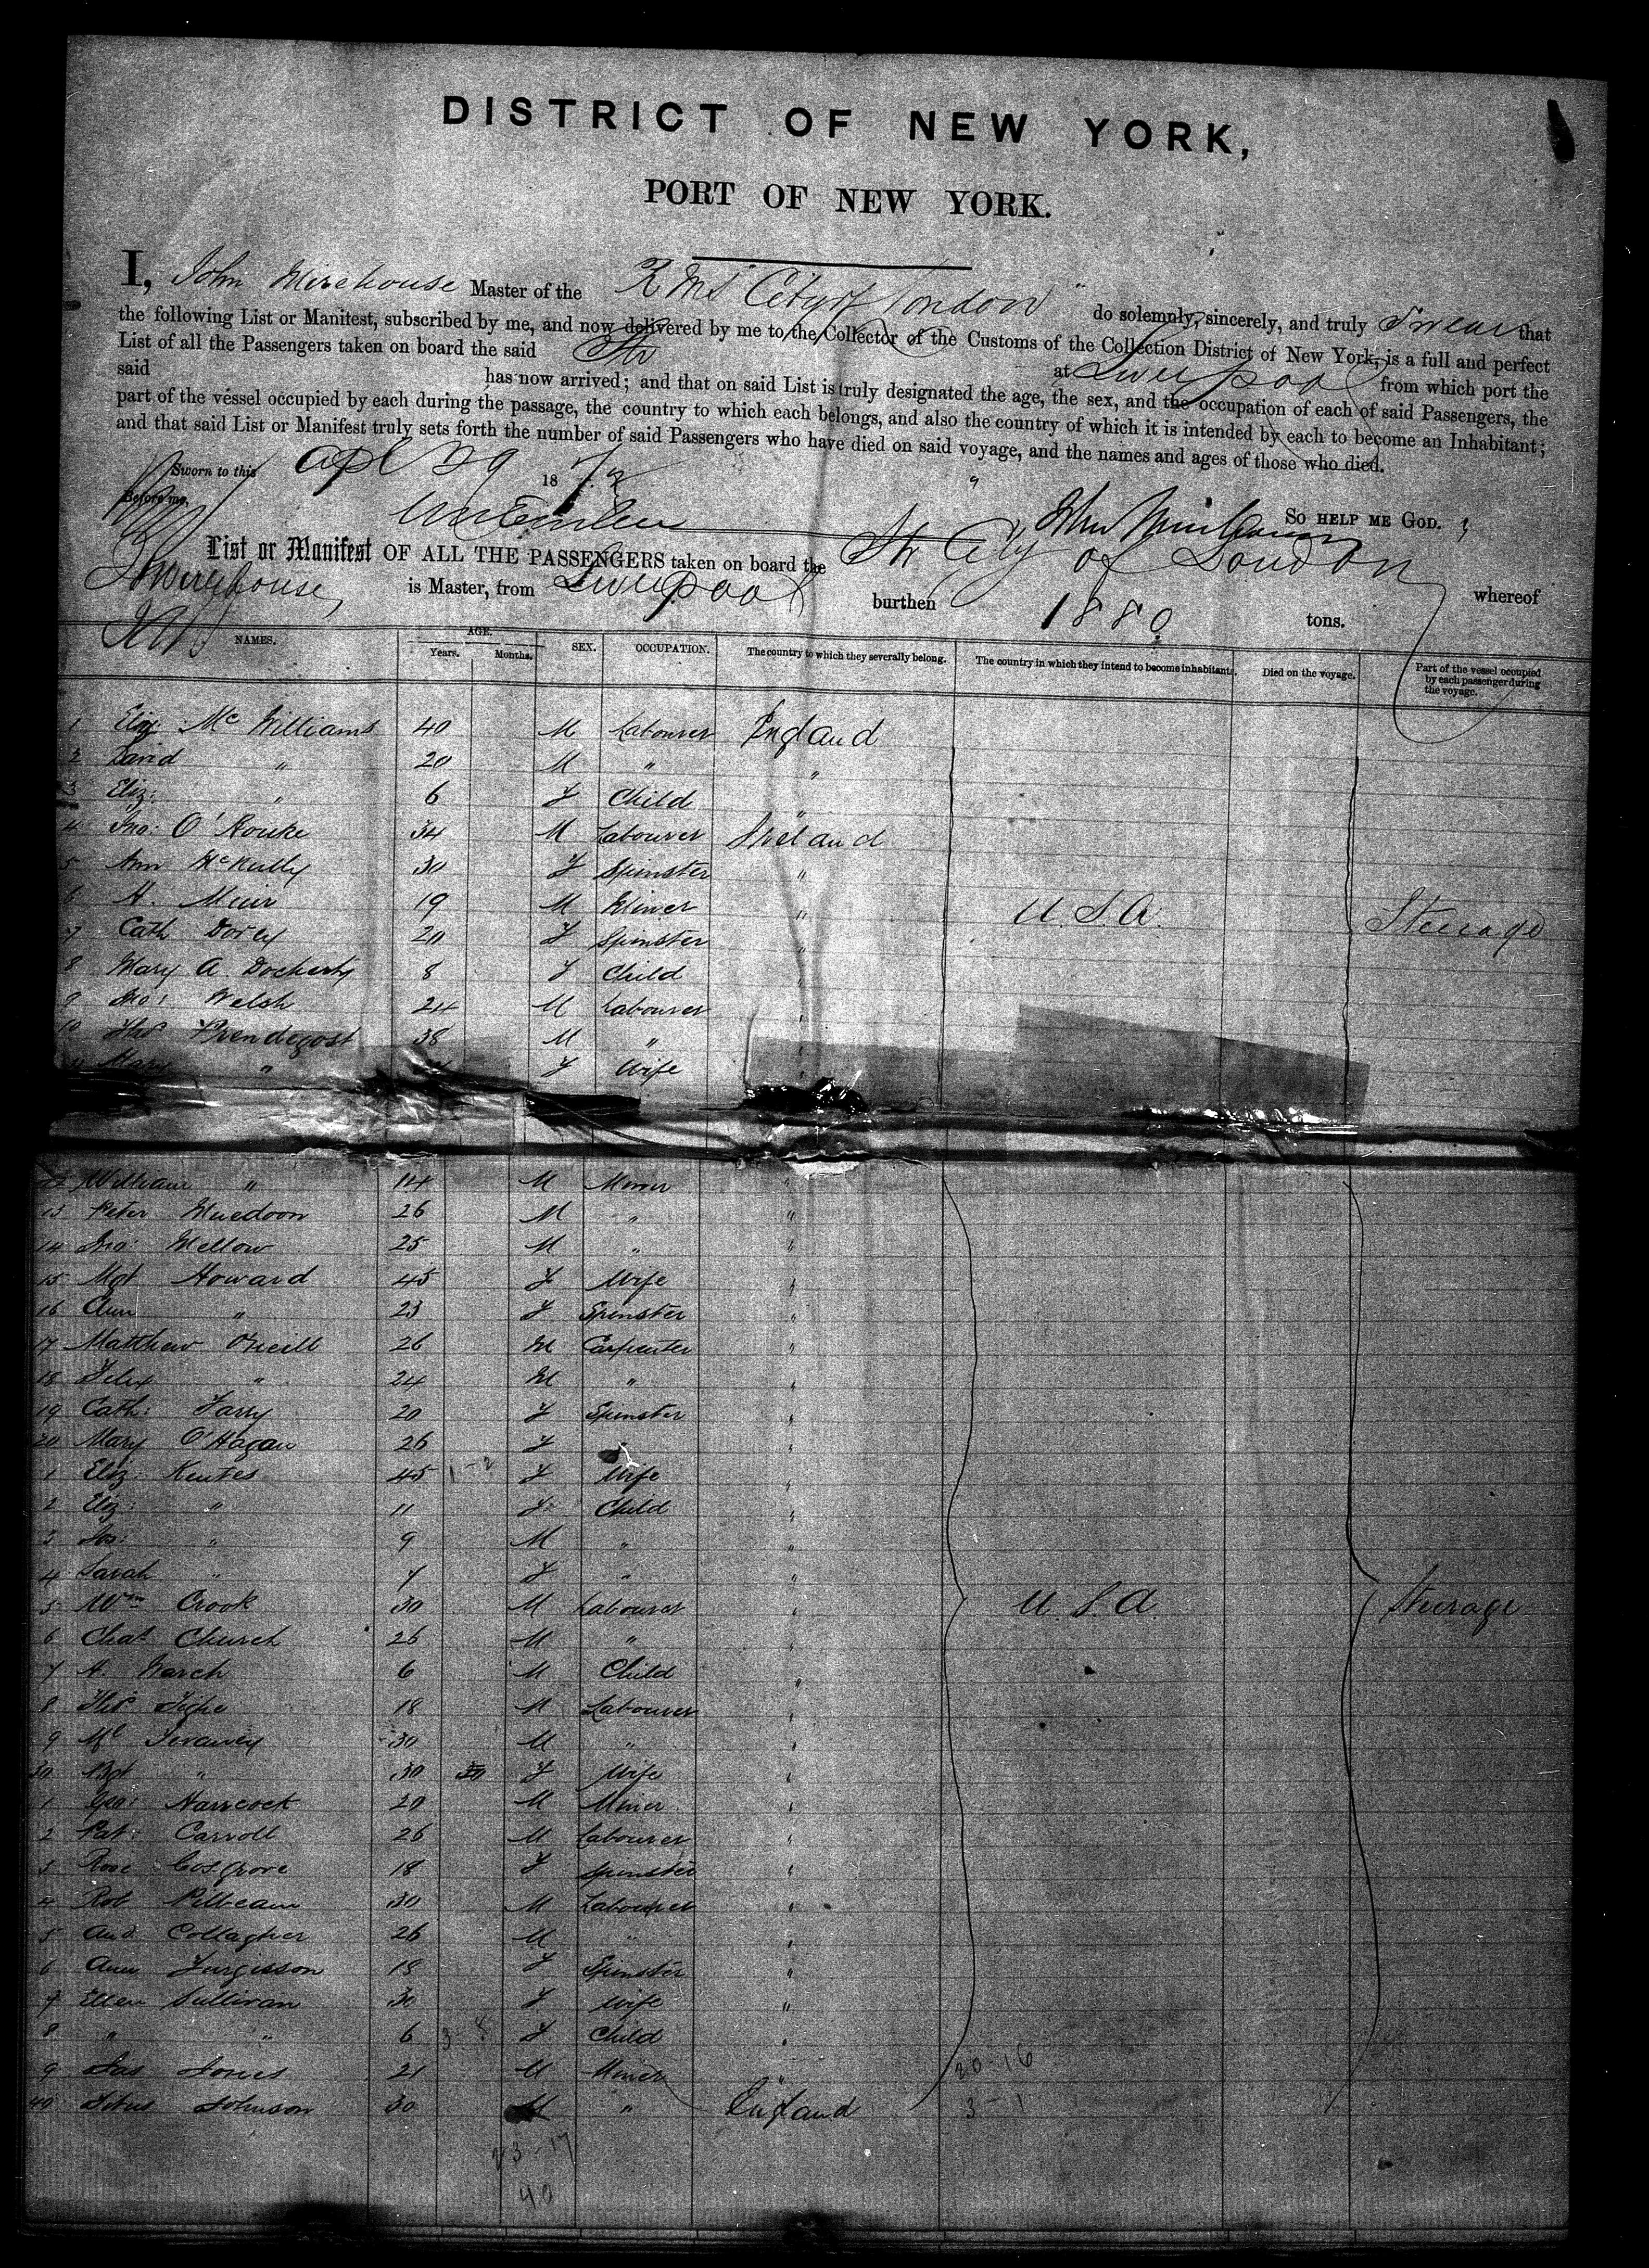 DISTRICT OF NEW YORK,
PORT OF NEW YORK.
I, John Mirehouse Master of the R M S "City of London" do solemnly, sincerely, and truly Swear that
the following List or Manifest, subscribed by me, and now delivered by me to the Collector of the Customs of the Collection District of New York, is a full and perfect
List of all the Passengers taken on board the said Str at Liverpool from which port the
said has now arrived; and that on said List is truly designated the age, the sex, and the occupation of each of said Passengers, the
part of the vessel occupied by each during the passage, the country to which each belongs, and also the country of which it is intended by each to become an Inhabitant;
and that said List or Manifest truly sets forth the number of said Passengers who have died on said voyage, and the names and ages of those who died.
Sworn to this Apl 29 187
Before me, So HELP ME GOD.
List or Manifest OF ALL THE PASSENGERS taken on board the Str City of London whereof
is Master, from Liverpool burthen 1880 tons.
NAMES. AGE. Years. Months. SEX. OCCUPATION. The country to which they severally belong. The country in which they intend to become inhabitants. Died on the voyage. Part of the vessel occupied by each passenger during the voyage.
1 Eliz: Mc Williams 40 M Labourer England
2 David " 20 M " "
3 Eliz: " 6 F Child "
4 Jno: O'Rouke 34 M Labourer Ireland
5 Ann McNully 30 F Spinster "
6 A. Muir 19 M Miner " U.S.A. Steerage
7 Cath Dorey 20 F Spinster "
8 Mary A. Docherty 8 F Child "
9 Jno: Welsh 24 M Labourer "
10 Thos Prendegost 38 M " "
11 Mary " F Wife "
12 William " 14 M Miner "
13 Peter Muedoon 26 M " "
14 Jno: Mellow 25 M " "
15 Mgt Howard 45 F Wife "
16 Ann " 23 F Spinster "
17 Matthew O'Neill 26 M Carpenter "
18 Felix " 24 M " "
19 Cath: Farry 20 F Spinster "
20 Mary O'Hagan 26 F "
1 Eliz: Keutes 45 1-2 F Wife "
2 Eliz: " 11 F Child "
3 Jos: " 9 M " "
4 Sarah " 7 F " "
5 Wm Crook 30 M Labourer " U.S.A. Steerage
6 Chas Church 26 M " "
7 A. March 6 M Child "
8 Thos Tighe 18 M Labourer "
9 Ml 30 M " "
30 Bgt " 30 30 F Wife "
1 Geo: Hancock 20 M Miner "
2 Pat: Carroll 26 M Labourer "
3 Rose Cosgrove 18 F Spinster "
4 Rob Pilbeam 30 M Labourer "
5 And Collagher 26 M " "
6 Ann Furgisson 18 F Spinster "
7 Ellen Sullivan 30 F Wife "
8 " " 6 3-8 F Child "
9 Jas Jones 21 M Miner " 20-16
40 Titus Johnson 30 M " England 3-1
23-17
40